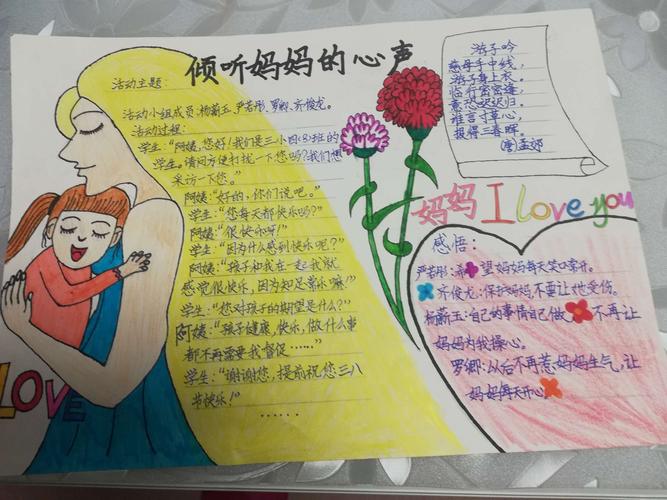 倾听妈妈的心声
活动主题
活动小组成员:杨蓊玉、严若彤、罗卿、齐俊龙。
活动过程:
学生:“阿姨,您好!我们是三小四(3)班的
学生。请问方便打扰一下您吗?我们想
采访一下您。”
阿姨:“好的,你们说吧。”
学生:“您每天都快乐吗?”
阿姨:“很快乐呀!”
学生:“因为什么感到快乐呢?”
阿姨:“孩子和我在一起我就
感觉很快乐,因为知足常乐嘛!”
学生:“您对孩子的期望是什么?”
阿姨:“孩子健康,快乐,做什么事
都不再需要我督促……”
学生:“谢谢您,提前祝您三八
节快乐!”
……
LOVE
游子吟
慈母手中线,
游子身上衣。
临行密密缝,
意恐迟迟归。
谁言寸草心,
报得三春晖。
(唐)孟郊
妈妈 I love you
感悟:
严若彤:希望妈妈每天笑口常开。
齐俊龙:保护妈妈,不要让她受伤。
杨蓊玉:自己的事情自己做 不再让
妈妈为我操心。
罗卿:从后不再惹妈妈生气,让
妈妈每天开心